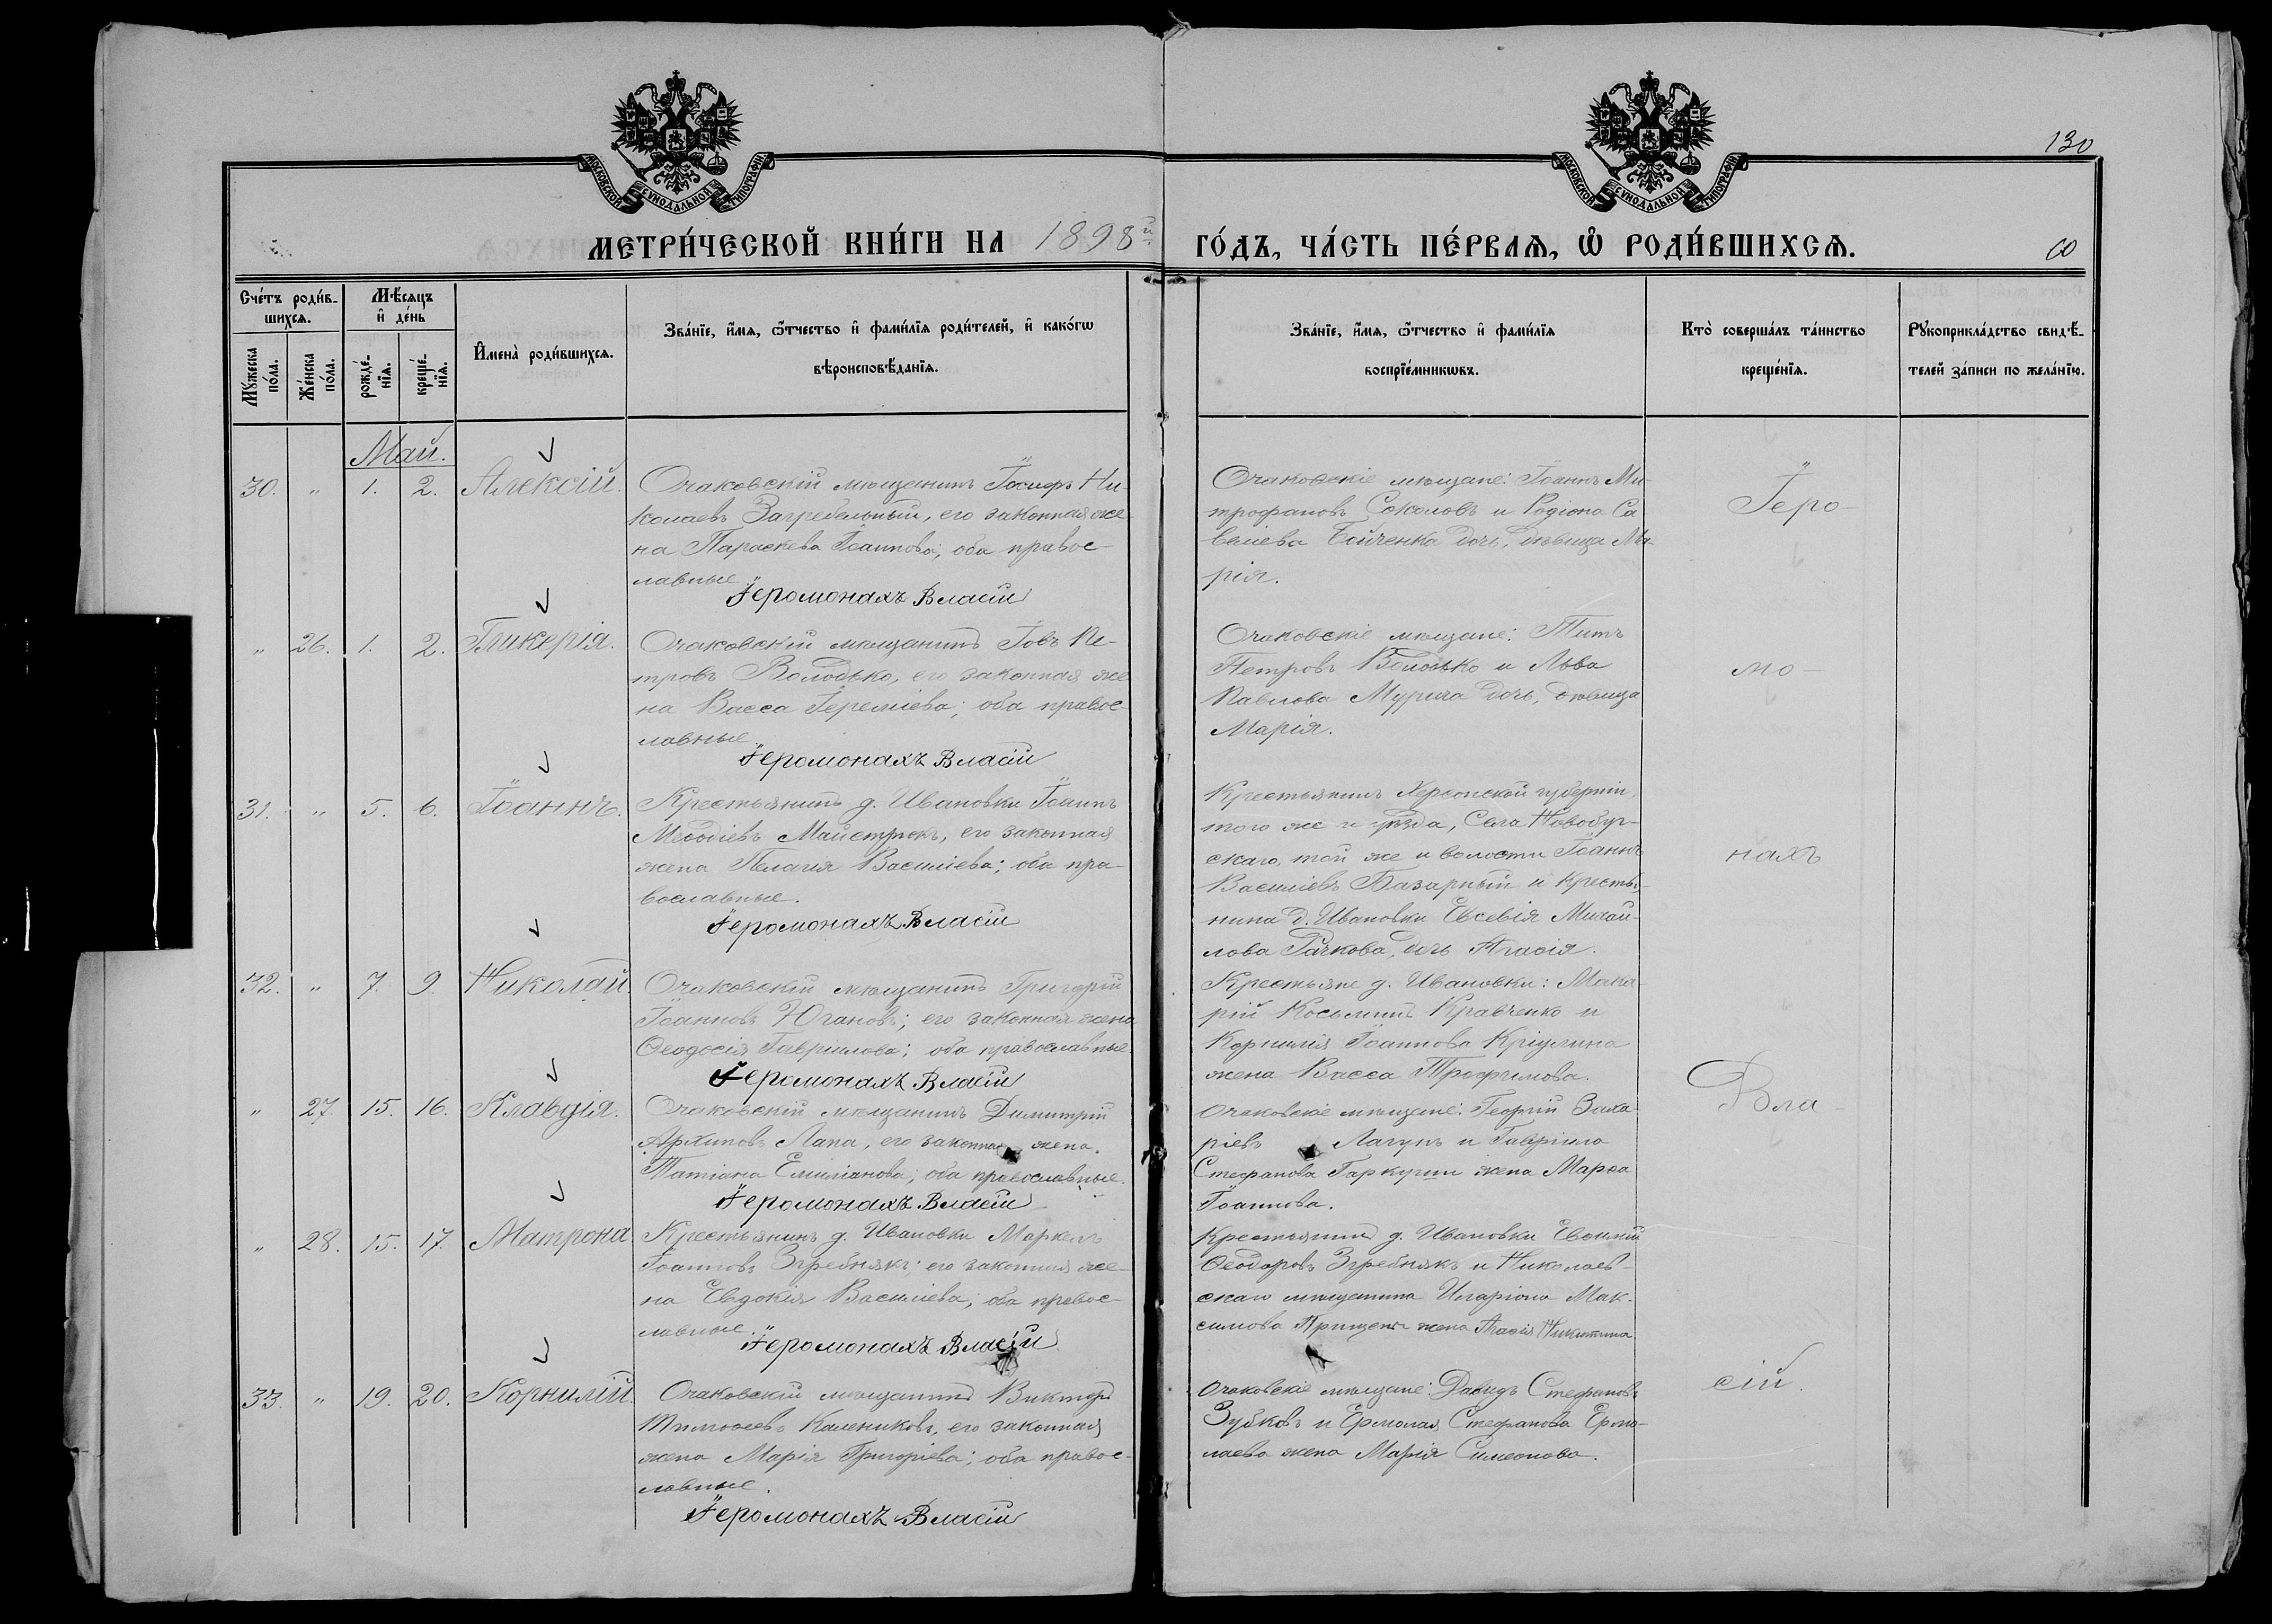 130
МОСКОВСКОЙ СѴНОДАЛЬНОЙ ТИПОГРАФІИ
МОСКОВСКОЙ СѴНОДАЛЬНОЙ ТИПОГРАФІИ
МЕТРИ́ЧЕСКОЙ КНИ́ГИ НА 1898й ГО́ДЪ, ЧА́СТЬ ПЕ́РВАѦ, Ѡ҆ РОДИ́ВШИХСѦ.
Сче́тъ роди́в-
шихсѧ.
Мꙋ́жеска по́ла.
Же́нска по́ла.
Мѣ́сѧцъ
и҆ де́нь
рожде́-
нїѧ.
креще́-
нїѧ.
И҆мена̀ роди́вшихсѧ.
Зва́нїе, и҆́мѧ, ѻ҆́тчество и҆ фами́лїѧ роди́телей, и҆ како́гѡ
вѣроисповѣ́данїѧ.
Зва́нїе, и҆́мѧ, ѻ҆́тчество и҆ фами́лїѧ
воспрїе́мникѡвъ.
Кто̀ соверша́лъ та́инство
креще́нїѧ.
Рꙋкоприкла́дство свидѣ́-
телей за́писи по жела́нїю.
Май.
30. " 1. 2. Алексій.
Очаковскій мѣщанинъ Іосифъ Ни-
колаевъ Загребельный, его законная же-
на Параскева Іоаннова; оба правос-
лавные
Іеромонахъ Власій
Очаковскіе мѣщане: Іоаннъ Ми-
трофановъ Соколовъ и Родіона Са-
веліева Бойченка дочь, дѣвица Ма-
рія.
Іеро-
" 26. 1. 2. Гликерія.
Очаковскій мѣщанинъ Іовъ Пе-
тровъ Володько, его законная же-
на Васса Іереміева; оба правос-
лавные.
Іеромонахъ Власій
Очаковскіе мѣщане: Титъ
Петровъ Володько и Льва
Павлова дочь, дѣвица
Марія.
мо-
31. " 5. 6. Іоаннъ.
Крестьянинъ д. Ивановки Іоаннъ
Меѳодіевъ Майстрюкъ, его законная
жена Пелагія Василіева; оба пра-
вославные.
Іеромонахъ Власій
Крестьянинъ Херсонской губерніи,
того же и уѣзда, Села Новобуг-
скаго, той же и волости Іоаннъ
Василіевъ Базарный и крестья-
нина д. Ивановки Евсевія Михай-
лова дочь Агаѳія.
нахъ
32. " 7. 9. Николай
Очаковскій мѣщанинъ Григорій
Іоанновъ Югановъ; его законная жена
Ѳеодосія Гавріилова; оба православные.
Іеромонахъ Власій
Крестьяне д. Ивановки: Мака-
рій Косьминъ Кравченко и
Корнилія Іоаннова
жена Васса Трофимова.
" 27. 15. 16. Клавдія.
Очаковскій мѣщанинъ Димитрій
Архиповъ Лапа, его законная жена
Татіана Емиліанова; оба православные.
Іеромонахъ Власій
Очаковскіе мѣщане: Георгій Заха-
ріевъ Лагунъ и Гавріила
Стефанова жена Марѳа
Іоаннова.
Вла-
" 28. 15. 17. Матрона
Крестьянинъ д. Ивановки Маркелъ
Іоанновъ Згребнякъ; его законная же-
на Евдокія Василіева; оба правос-
лавные.
Іеромонахъ Власій
Крестьянинъ д. Ивановки
Ѳеодоровъ Згребнякъ и Николаев-
скаго мѣщанина Иларіона Мак-
симова жена Агаѳія Никитина
33. " 19. 20. Корнилій.
Очаковскій мѣщанинъ Викторъ
Тимоѳеевъ Калениковъ, его законная
жена Марія Григоріева; оба правос-
лавные.
Іеромонахъ Власій
Очаковскіе мѣщане: Давидъ Стефановъ
Зубковъ и Ермолая Стефанова Ермо-
лаева жена Марія Симеонова.
сій.